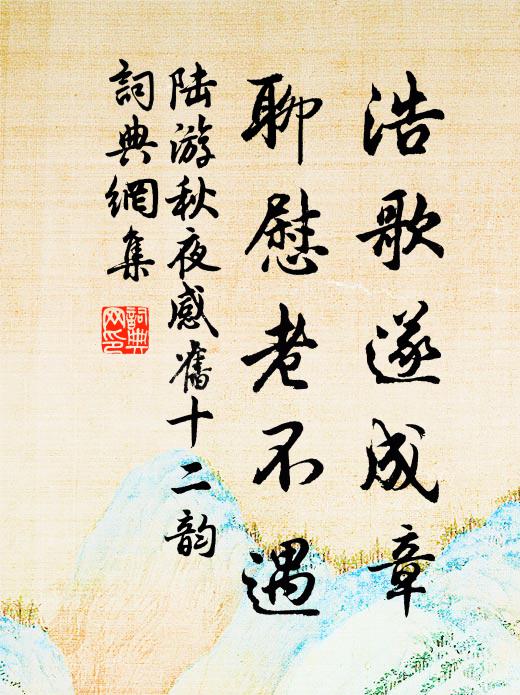 浩歌遂成章
聊慰老不遇
陆游秋夜感舊十二韵
詞典網集
詞典网印